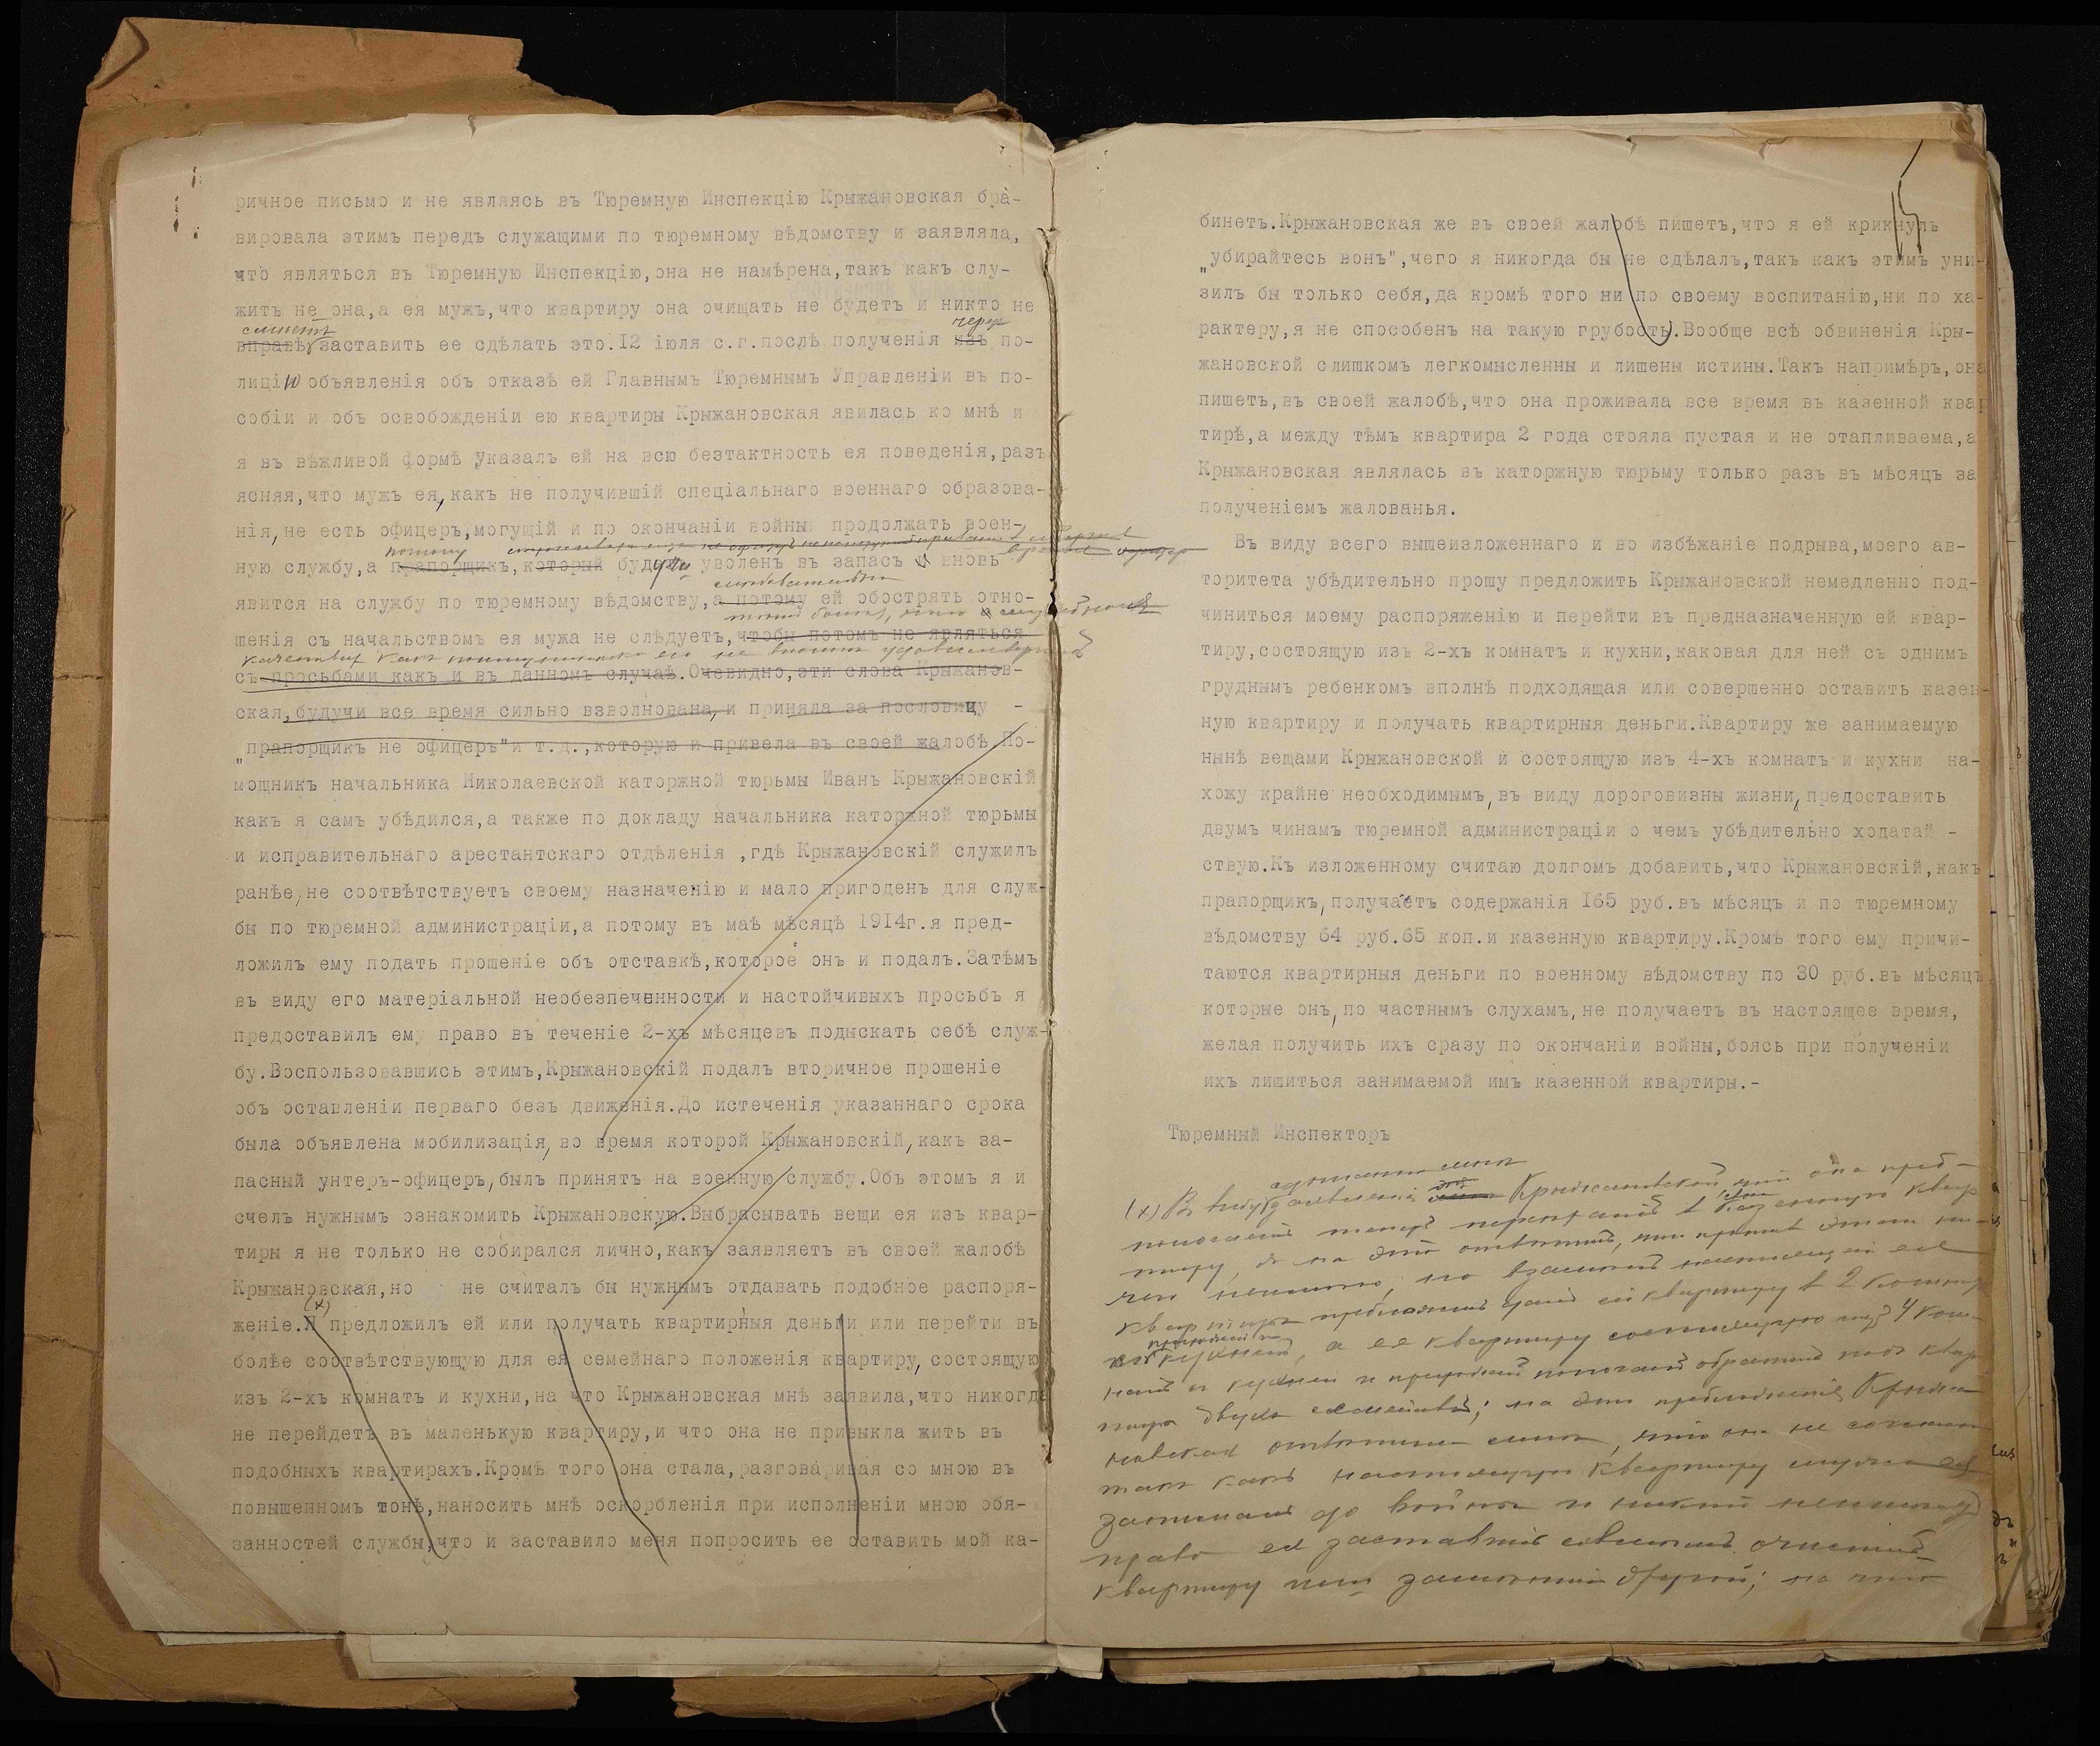 ричное письмо и не являясь въ Тюремную Инспекцію Крыжановская бра-
вировала этимъ передъ служащими по тюремному вѣдомству и заявляла,
что являться въ Тюремную Инспекцію,она не намѣрена,такъ какъ слу-
жить не она,а ея мужъ,что квартиру она очищать не будетъ и никто не
смѣетъ черезъ
вправѣ заставить ее сдѣлать это.12 іюля с.г.послѣ полученія изъ по-
лиціи объявленія объ отказѣ ей Главнымъ Тюремнымъ Управленіи въ по-
собіи и объ освобожденіи ею квартиры Крыжановская явилась ко мнѣ и
я въ вѣжливой формѣ указалъ ей на всю безтактность ея поведенія,разъ
ясняя,что мужъ ея,какъ не получившій спеціальнаго военнаго образова-
нія,не есть офицеръ,могущій и по окончаніи войны продолжать воен-
потому
ную службу,а прапорщикъ,который будетъ уволенъ въ запасъ и вновь
слѣдовательно
явится на службу по тюремному вѣдомству,а потому ей обострять отно-
шенія съ начальствомъ ея мужа не слѣдуетъ,чтобы потомъ не являться
съ просьбами какъ и въ данномъ случаѣ.Очевидно,эти слова Крыжанов-
ская,будучи все время сильно взволнована,и приняла за пословицу -
"прапорщикъ не офицеръ"и т.д.,которую и привела въ своей жалобѣ.По-
мощникъ начальника Николаевской каторжной тюрьмы Иванъ Крыжановскій
какъ я самъ убѣдился,а также по докладу начальника каторжной тюрьмы
и исправительнаго арестантскаго отдѣленія ,гдѣ Крыжановскій служилъ
ранѣе,не соотвѣтствуетъ своему назначенію и мало пригоденъ для служ-
бы по тюремной администраціи,а потому въ маѣ мѣсяцѣ 1914г.я пред-
ложилъ ему подать прошеніе объ отставкѣ,которое онъ и подалъ.Затѣмъ
въ виду его матеріальной необезпеченности и настойчивыхъ просьбъ я
предоставилъ ему право въ теченіе 2-хъ мѣсяцевъ подыскать себѣ служ-
бу.Воспользовавшись этимъ,Крыжановскій подалъ вторичное прошеніе
объ оставленіи перваго безъ движенія.До истеченія указаннаго срока
была объявлена мобилизація,во время которой Крыжановскій,какъ за-
пасный унтеръ-офицеръ,былъ принятъ на военную службу.Объ этомъ я и
счелъ нужнымъ ознакомить Крыжановскую.Выбрасывать вещи ея изъ квар-
тиры я не только не собирался лично,какъ заявляетъ въ своей жалобѣ
Крыжановская,но не считалъ бы нужнымъ отдавать подобное распоря-
(х)
женіе.Я предложилъ ей или получать квартирныя деньги или перейти въ
болѣе соотвѣтствующую для ея семейнаго положенія квартиру,состоящую
изъ 2-хъ комнатъ и кухни,на что Крыжановская мнѣ заявила,что никогда
не перейдетъ въ маленькую квартиру,и что она не привыкла жить въ
подобныхъ квартирахъ.Кромѣ того она стала,разговаривая со мною въ
повышенномъ тонѣ,наносить мнѣ оскорбленія при исполненіи мною обя-
занностей службы,что и заставило меня попросить ее оставить мой ка-
15
бинетъ.Крыжановская же въ своей жалобѣ пишетъ,что я ей крикнулъ
"убирайтесь вонъ",чего я никогда бы не сдѣлалъ,такъ какъ этимъ уни-
зилъ бы только себя,да кромѣ того ни по своему воспитанію,ни по ха-
рактеру,я не способенъ на такую грубость.Вообще всѣ обвиненія Кры-
жановской слишкомъ легкомысленны и лишены истины.Такъ напримѣръ,она
пишетъ,въ своей жалобѣ,что она проживала все время въ казенной квар
тирѣ,а между тѣмъ квартира 2 года стояла пустая и не отапливаема,а
Крыжановская являлась въ каторжную тюрьму только разъ въ мѣсяцъ за
полученіемъ жалованья.
Въ виду всего вышеизложеннаго и во избѣжаніе подрыва,моего ав-
торитета убѣдительно прошу предложить Крыжановской немедленно под-
чиниться моему распоряженію и перейти въ предназначенную ей квар-
тиру,состоящую изъ 2-хъ комнатъ и кухни,каковая для ней съ однимъ
груднымъ ребенкомъ вполнѣ подходящая или совершенно оставить казен-
ную квартиру и получать квартирныя деньги.Квартиру же занимаемую
нынѣ вещами Крыжановской и состоящую изъ 4-хъ комнатъ и кухни на-
хожу крайне необходимымъ,въ виду дороговизны жизни,предоставить
двумъ чинамъ тюремной администраціи о чемъ убѣдительно ходатай -
ствую.Къ изложенному считаю долгомъ добавить,что Крыжановскій,какъ
прапорщикъ,получаетъ содержанія 165 руб.въ мѣсяцъ и по тюремному
вѣдомству 64 руб.65 коп.и казенную квартиру.Кромѣ того ему причи-
таются квартирныя деньги по военному вѣдомству по 30 руб.въ мѣсяцъ
которые онъ,по частнымъ слухамъ,не получаетъ въ настоящее время,
желая получить ихъ сразу по окончаніи войны,боясь при полученіи
ихъ лишиться занимаемой имъ казенной квартиры.-
Тюремный Инспекторъ
(х) Въ виду заявленія Крыжановской что она пред-
полагаетъ теперь переѣхать въ казенную квар
тиру, я на это отвѣтилъ, что противъ этого ни-
чего не имѣю, но взамѣнъ настоящей ея
квартиры предложилъ ей квартиру въ 2 комнаты
съ кухней, а ее квартиру состоящую изъ 4 ком-
натъ и кухни и прихожей полагалъ обратить подъ квар
тиры двухъ семействъ; на это предложеніе Крыжа
новская отвѣтила мнѣ, что она не согласна
такъ какъ настоящую квартиру мужъ ея
занималъ до войны и никто не имѣетъ
права ея заставить очистить
квартиру или замѣнить другой; на что